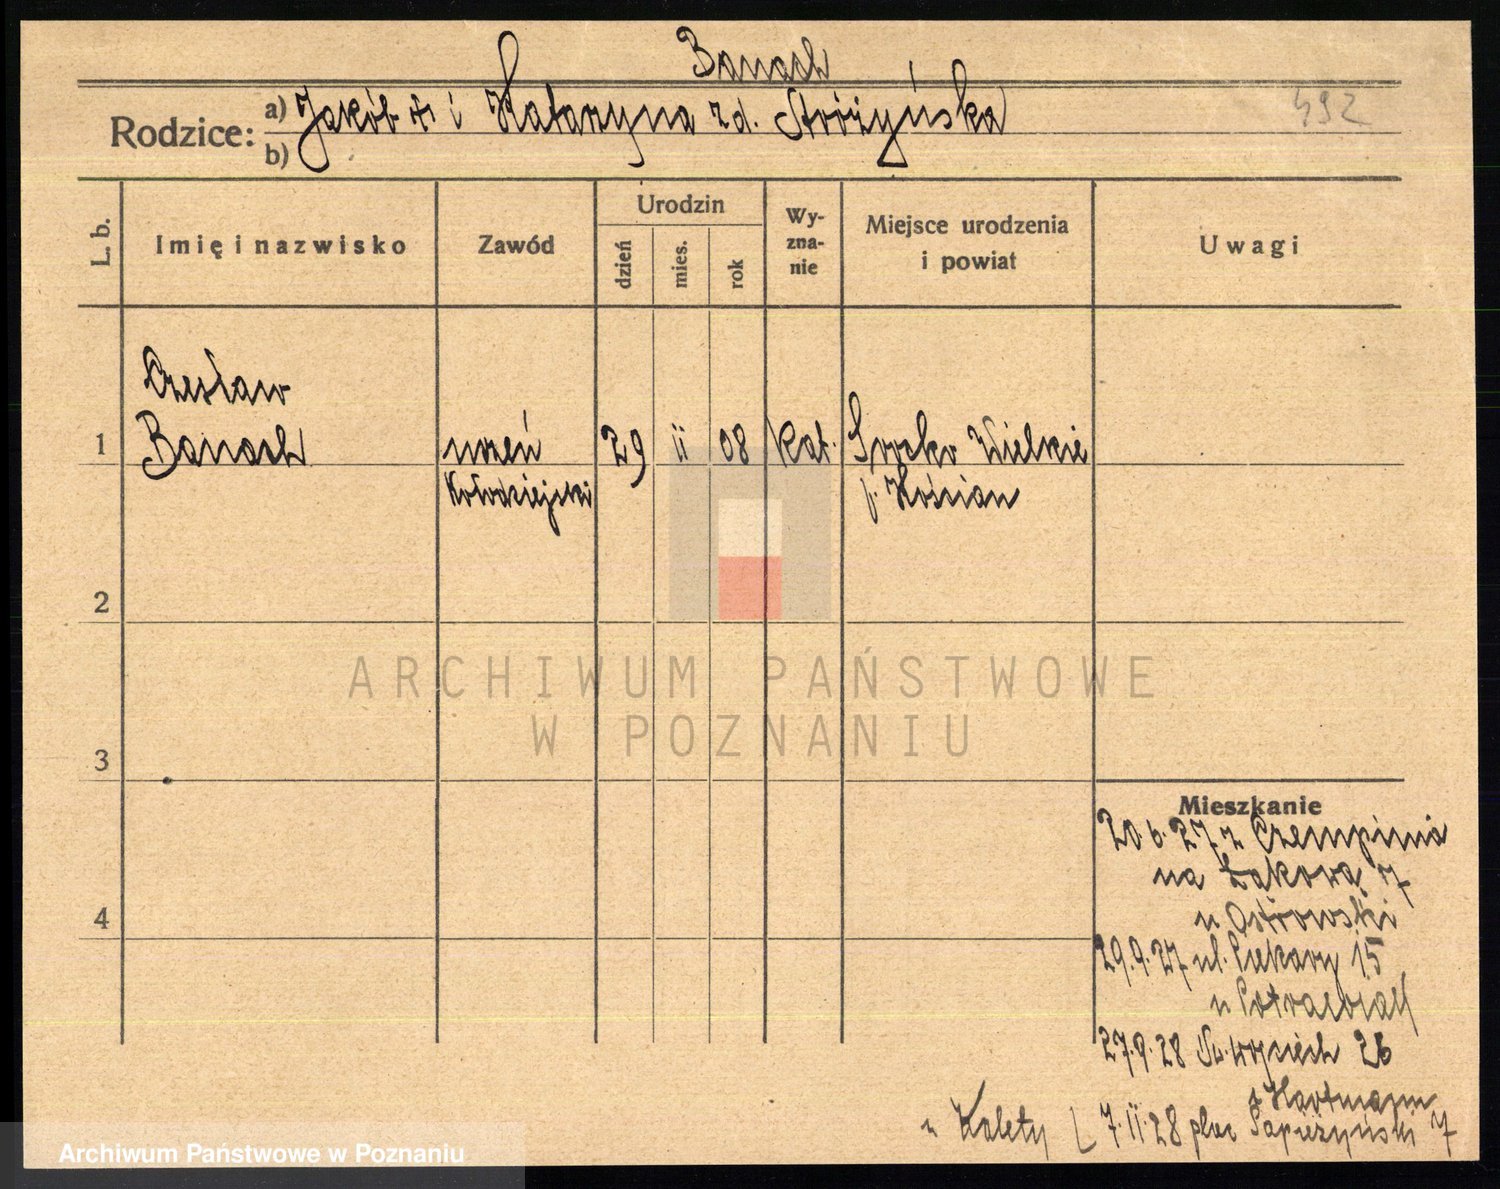 Banach
Rodzice: a) Jakób i Katarzyna zd. Stróżyńska
492
b)
L. b. Imię i nazwisko Zawód Urodzin dzień mies. rok Wy-zna-nie Miejsce urodzenia i powiat Uwagi
Czesław
1 Banach uczeń 29 ii 08 kat. Srocko Wielkie
kołodziejski p. Kościan
2
ARCHIWUM PAŃSTWOWE
W POZNANIU
3
Mieszkanie
20.6.27 z Czempinia
na Łąkową 7
u Ostrowski
29.9.27 ul. Piekary 15
u
27.9.28 Św. Wojciech 26
Hartmann
4
u Kalety 7.ii.28 plac Sapieżyński 7
Archiwum Państwowe w Poznaniu